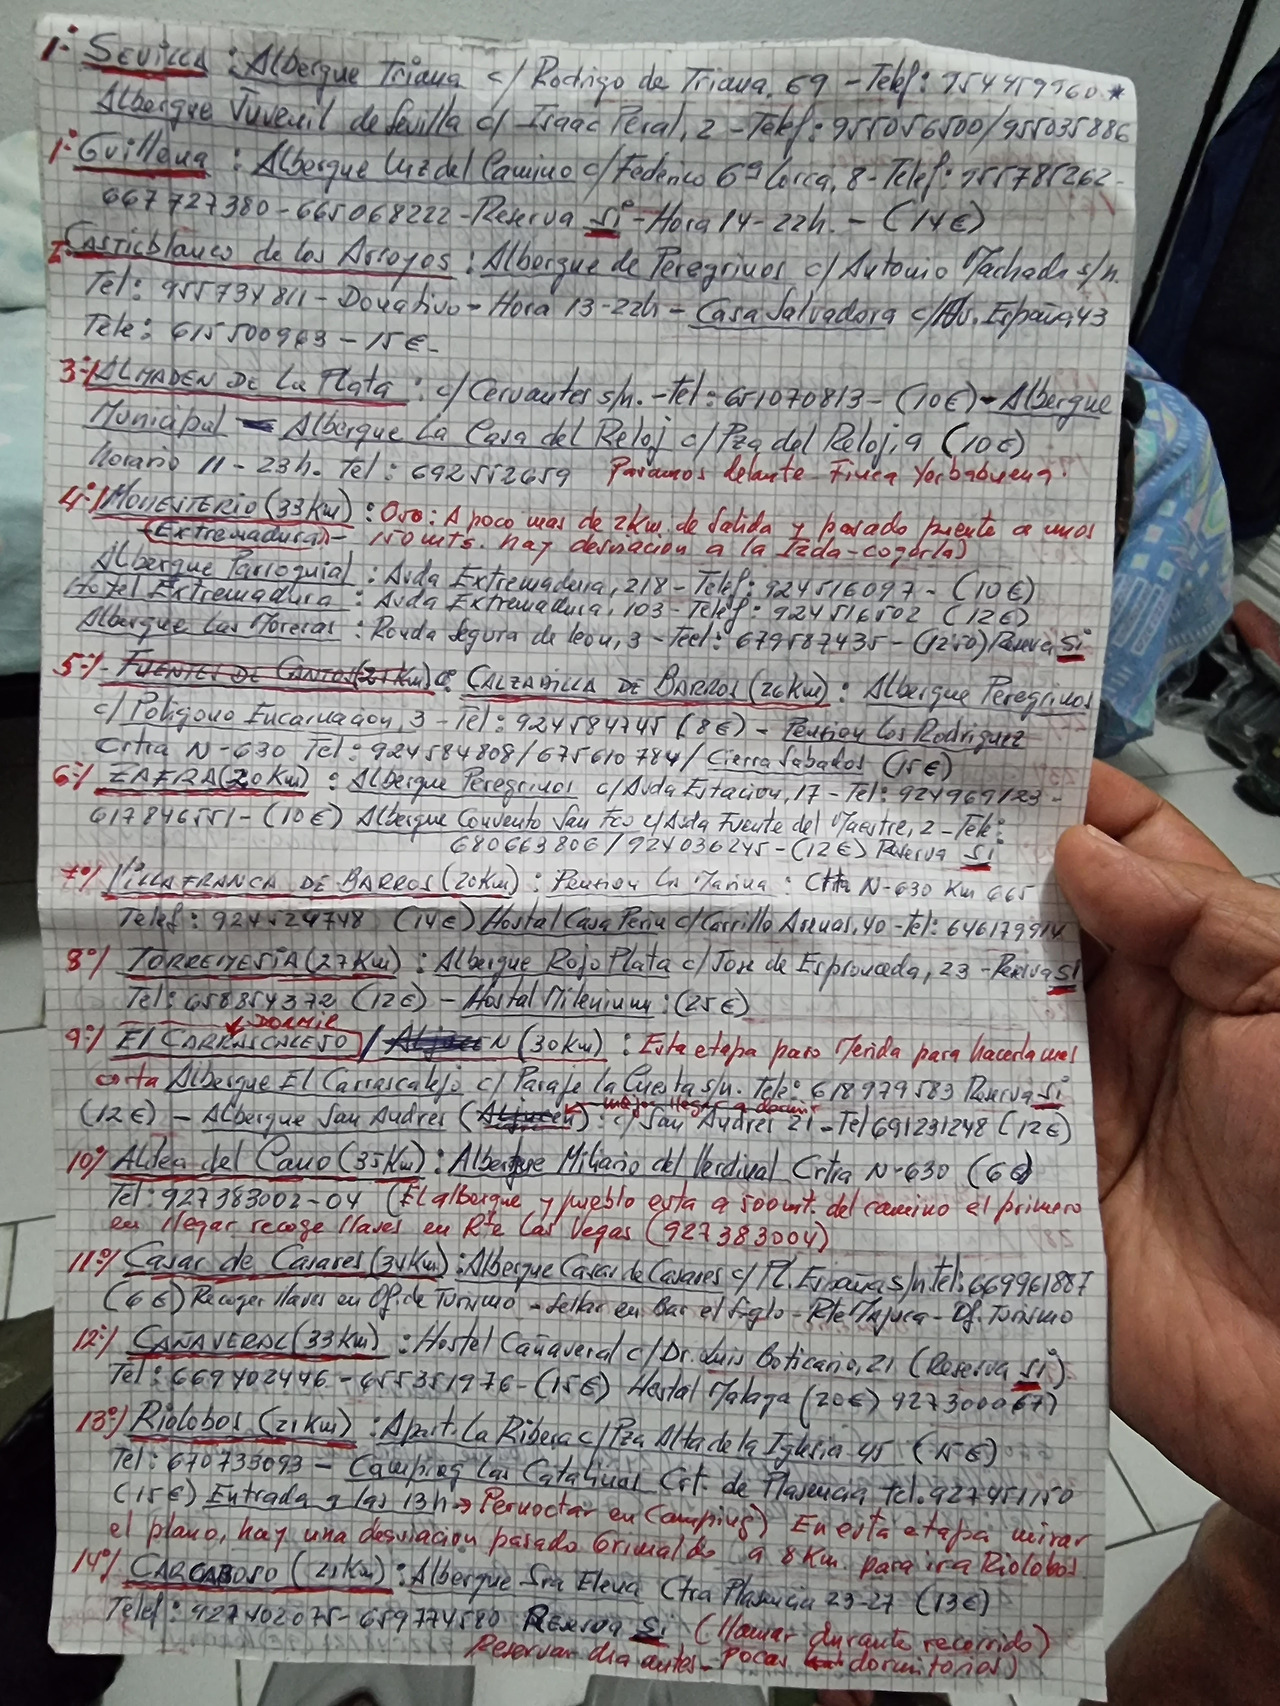 1º- SEVILLA : Albergue Triana c/ Rodrigo de Triana, 69 - Telef: 954459960 *
Albergue Juvenil de Sevilla c/ Isaac Peral, 2 - Telef: 955056500/955035886
1º- Guillena : Albergue Luz del Camino c/ Federico Gª Lorca, 8 - Telef: 955785262 -
667727380 - 665068222 - Reserva Si - Hora 14 - 22h. - (14€)
Castilblanco de los Arroyos : Albergue de Peregrinos c/ Antonio Machado s/n.
Tel: 955734811 - Donativo - Hora 13-22h - Casa Salvadora c/ Av. España 43
Tele: 615500963 - 15€ -
3º/ ALMADEN DE La Plata : c/ Cervantes s/n. - Tel: 651070813 - (10€) - Albergue
Municipal - Albergue La Casa del Reloj c/ Pza del Reloj, 9 (10€)
Horario 11 - 23h. Tel: 692552659 Pasamos delante Finca Yerbabuena!
4º/ MONESTERIO (33 Km) : Ojo: A poco mas de 2km. de Salida y pasado puente a unos
(Extremadura) - 150 mts. hay desviacion a la Izda - cogerla)
Albergue Parroquial : Avda Extremadura, 218 - Telef: 924516097 - (10€)
Hotel Extremadura : Avda Extremadura, 103 - Telef: 924516502 (12€)
Albergue Las Moreras : Ronda Segura de leon, 3 - Teel: 679587435 - (12'50) Reserva Si
5º/ - FUENTES DE CANTOS (21 Km) o: CALZADILLA DE BARROS (26 Km) : Albergue Peregrinos
c/ Poligono Encarnacion, 3 - Tel: 924584745 (8€) - Pension Los Rodriguez
Crtra N-630 Tel: 924584808 / 675610784 / Cierra Sabados (15€)
6º/ ZAFRA (20 Km) : Albergue Peregrinos c/ Avda Estacion, 17 - Tel: 924969123 -
617846551 - (10€) Albergue Convento San Fco c/ Avda Fuente del Maestre, 2 - Tele:
680663806 / 924036245 - (12€) Reserva Si
7º/ VILLAFRANCA DE BARROS (20 Km) : Pension La Marina : Ctra N-630 Km 665
Telef: 924524748 (14€) Hostal Casa Perin c/ Carrillo Arenas, 40 - Tel: 646179914
8º/ TORREMEJIA (27 Km) : Albergue Rojo Plata c/ Jose de Espronceda, 23 - Reserva Si
Tel: 658854372 (12€) - Hostal Milenium : (25€)
DORMIR
9º/ El CARRASCALEJO / (30 Km) : Esta etapa paro Merida para hacerla mas
corta Albergue El Carrascalejo c/ Paraje la Cuesta s/n. Tele: 618979583 Reserva Si
mejor llegar a dormir
(12€) - Albergue San Andres (Aljucen) : c/ San Andres 21 - Tel 691231248 (12€)
10º/ Aldea del Cano (35 Km) : Albergue Miliario del Verdinal Crtra N-630 (6€)
Tel: 927383002-04 (El albergue y pueblo esta a 500 mt. del camino el primero
en llegar recoge llaves en Rte Las Vegas (927383004)
11º/ Casar de Caceres (34 Km) : Albergue Casar de Caceres c/ Pl. España s/n tel: 669961887
(6€) Recoger llaves en Of. de Turismo - Sellar en Bar el Siglo - Rte Majuca - Of. Turismo
12º/ CAÑAVERAL (33 Km) : Hostel Cañaveral c/ Dr. Luis Boticario, 21 (Reserva Si)
Tel: 669402446 - 655351976 - (15€) Hostal Malaga (20€) 927300067)
13º/ Riolobos (21 Km) : Apart. La Ribera c/ Pza Alta de la Iglesia 45 (15€)
Tel: 670733093 - Camping Las Catalinas Crt. de Plasencia tel. 927451150
(15€) Entrada a las 13h → Pernoctar en Camping) En esta etapa mirar
el plano, hay una desviacion pasado Grimaldo a 8 Km. para ir a Riolobos
14º/ CARCABOSO (21 Km) : Albergue Sra Elena Ctra Plasencia 23-27 (13€)
Telef: 927402075 - 659774580 Reserva Si (llamar durante recorrido)
Reservar dia antes - Pocos dormitorios)